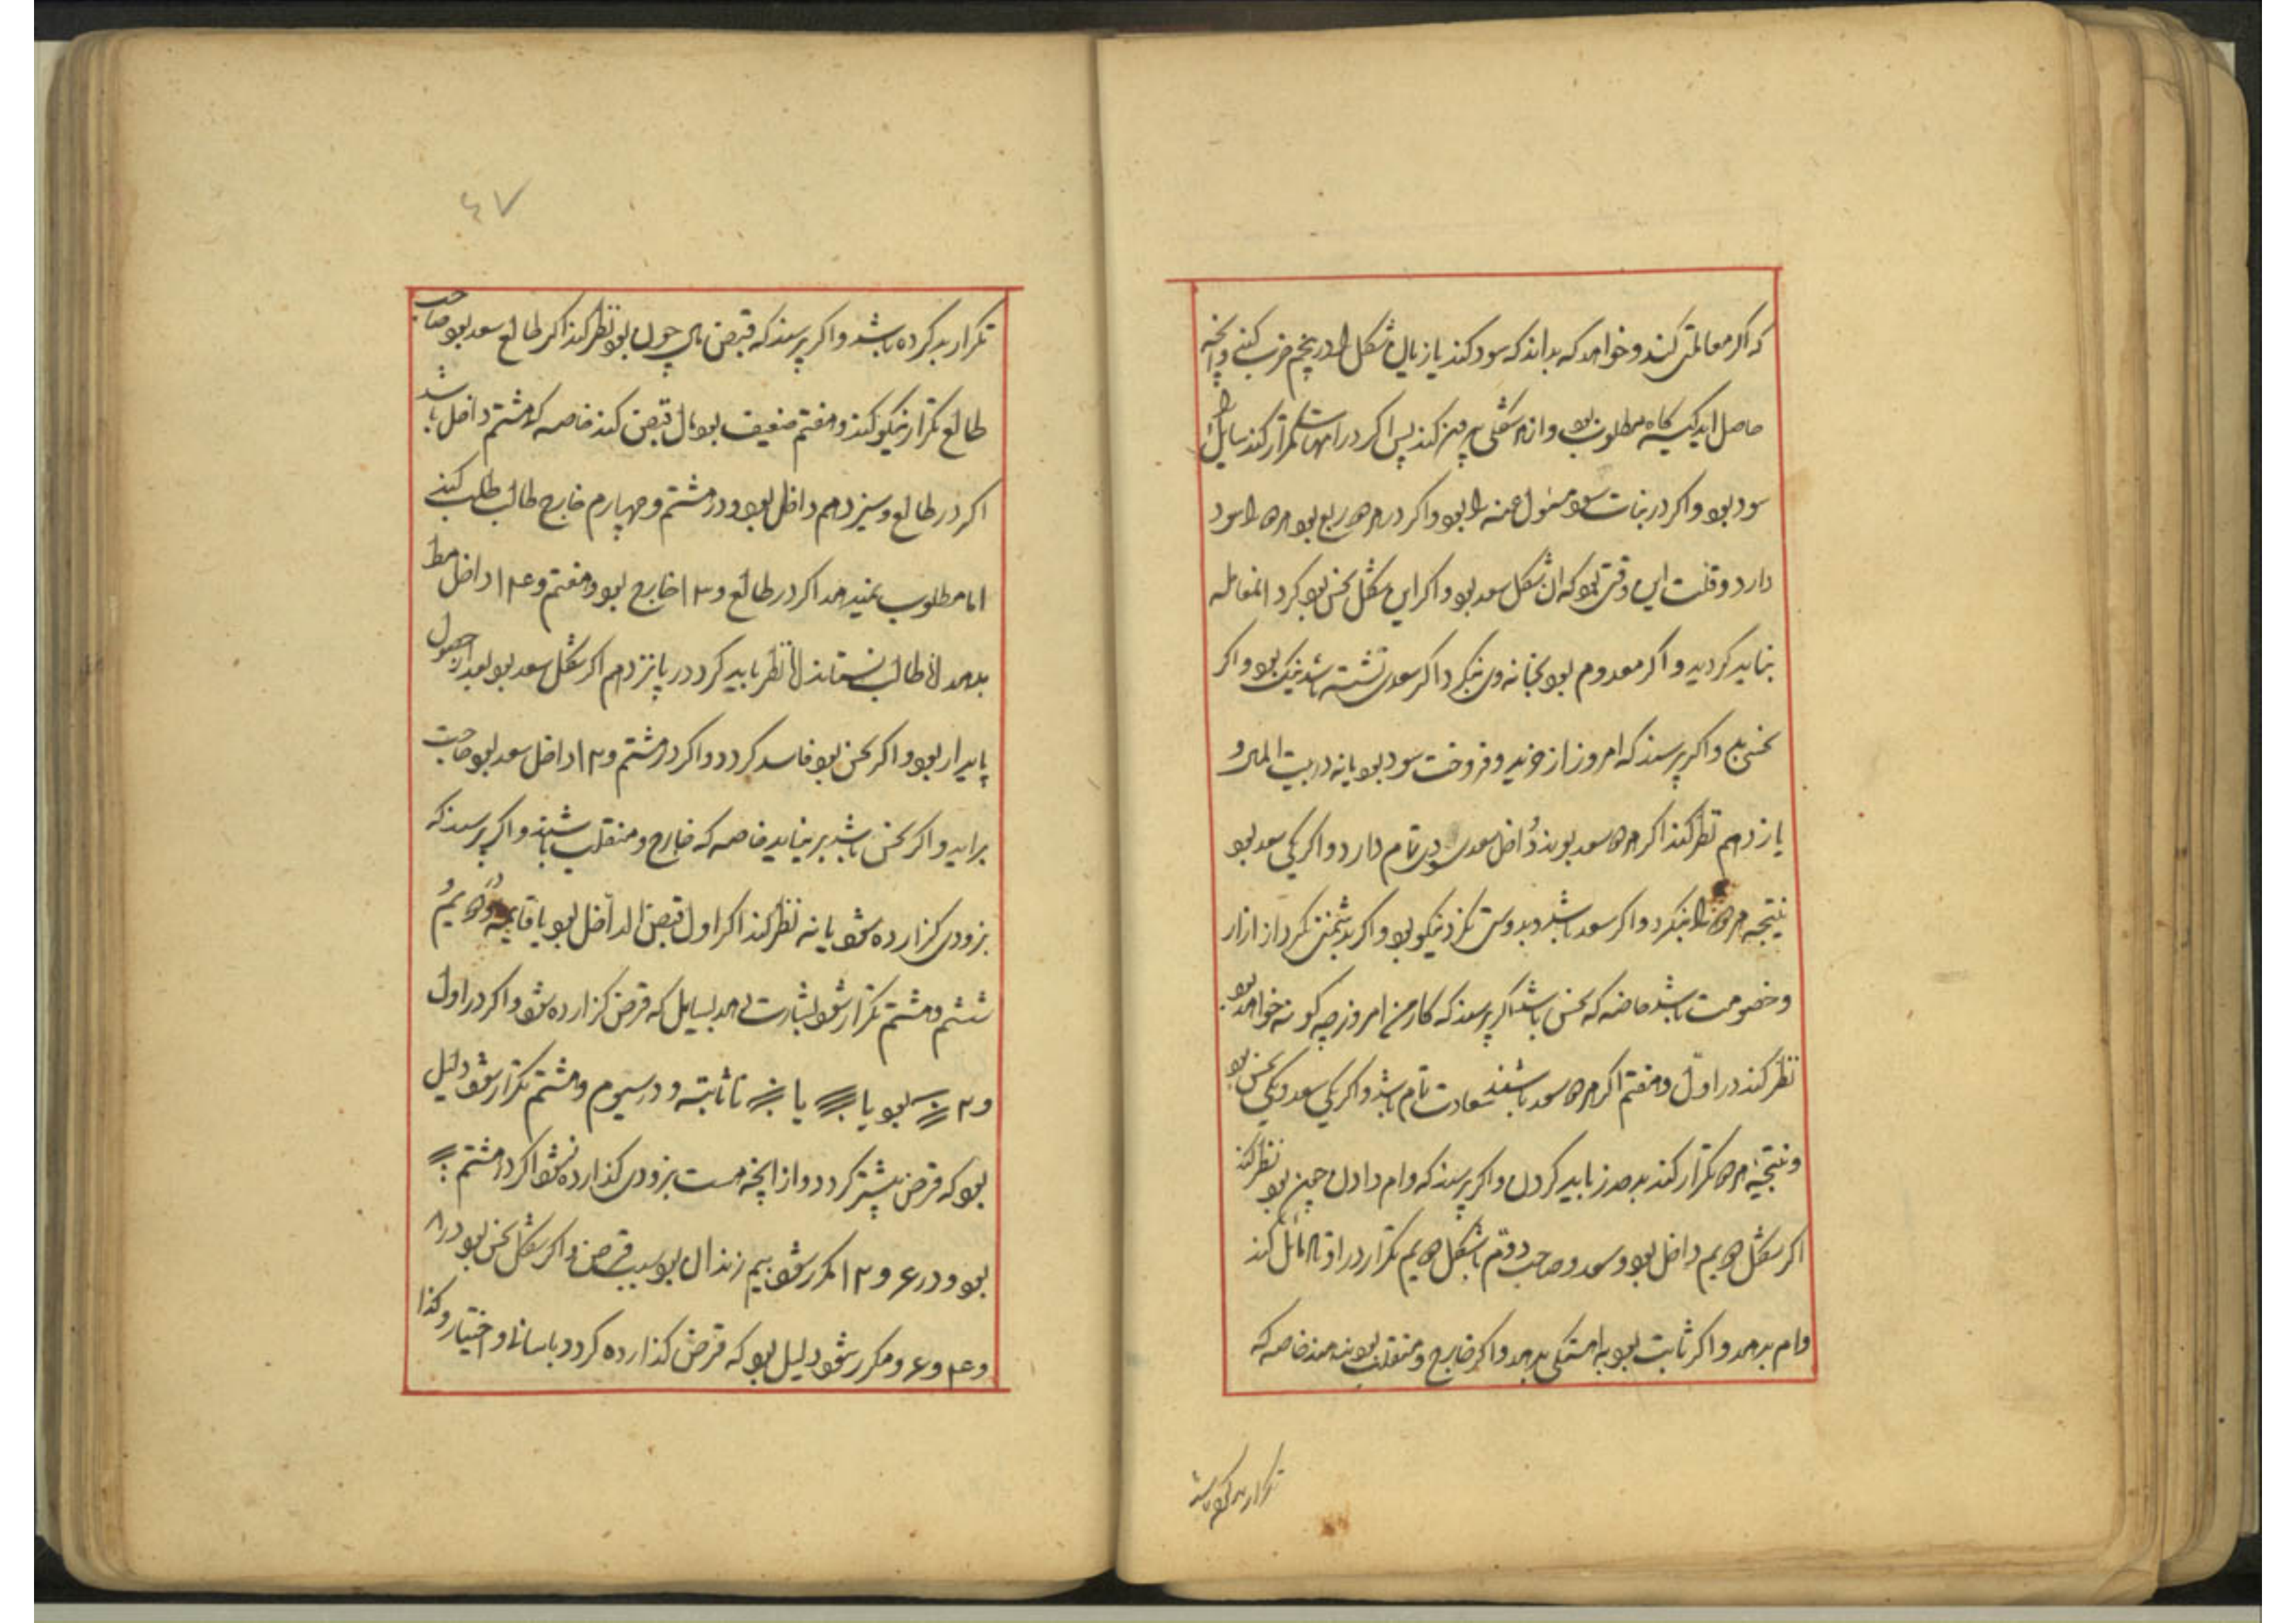 که اگر معاملتی کند و خواهد که بداند که سود کند یا زیان شکل را در پنجم ضرب کنی وانچه
حاصل اید یکیه کاه مطلوب بود وانرا شکلی پس اگر در امهات تکرار کند سایل را
سود بود و اگر در بنات بود مسئول عنه را بود و اگر در هر ربع بود هردو را سود
دارد وقلت این وقتی بود که ان شکل سعد بود و اگر این شکل نحس بود کرد المعامله
نباید کردید و اگر معدوم بود بخانه وی نکرد اگر سعدی نشسته باشد نیک بود و اگر
نحس بد و اگر پرسند که امروز از خرید و فروخت سود بود یا نه در بیت المال و
یازدهم نظر کند اگر هردو سعد بودند داخل سعدی سودی تمام دارد و اگر یکی سعد بود
نتیجه هردو را بنکرد و اگر سعد باشد و بدوستی نکرد نیکو بود و اگر بدشمنی نکرد از ازار
و خصومت باشد خاصه که نحس باشد اگر پرسند که کار من امروز چه کونه خواهد بود
نظر کند در اول و هفتم اگر هردو سعد باشند سعادت تمام باشد و اگر یکی سعد و یکی نحس بود
و نتیجه هردو تکرار کند بد حذر باید کردن و اگر پرسند که وام دادن چین بود نظر کند
اگر شکل دویم داخل بود و سعد و صاحب دوم باشکل دویم تکرار در اوتاد مائل کند
وام بدهد و اگر ثابت بود به اهستکی بدهد و اگر خارج و منقلب بود ندهند خاصه که
تکرار بد کرده باشد
٤٧
تکرار بد کرده باشد و اگر پرسند که قبض مال چون بود نظر کند اگر طالع سعد بود صاحب
طالع تکرار نیکو کند و هفتم ضعیف بود مال قبض کند خاصه که هشتم داخل باشد
اگر در طالع و سیزدهم داخل بود و در هشتم و چهارم خارج طالب طلب کند
اما مطلوب نمیدهد اگر در طالع و ۱۳ خارج بود و هفتم و ۱۴ داخل مط
بدهد اما طالب نستاند اما نظر باید کرد در پانزدهم اگر شکل سعد بود بعد از حصول
پایدار بود و اگر نحس بود فاسد کردد و اگر در هشتم و ۱۲ داخل سعد بود حاجت
براید و اگر نحس باشد بر نیاید خاصه که خارج و منقلب باشند و اگر پرسند که
بزودی کزارده شود یا نه نظر کند اگر اول قبض الداخل بود یا و دویم و
ششم و هشتم تکرار شود بشارت دهد بسایل که قرض کزارده شود و اگر در اول
و ۲ بود یا یا تا ثابته و در سیوم و هشتم تکرار شود دلیل
بود که قرض بیشتر کردد و از انچه هست بزودی کذارده نشود اگر در هشتم
بود و در ۶ و ۱۲ مکرر شود بیم زندان بود بسبب قرض و اگر شکل نحس بود در ۸
و ۴ و ۶ و مکرر شود دلیل بود که قرض کذارده کردد باسانی و اختیار و کذا